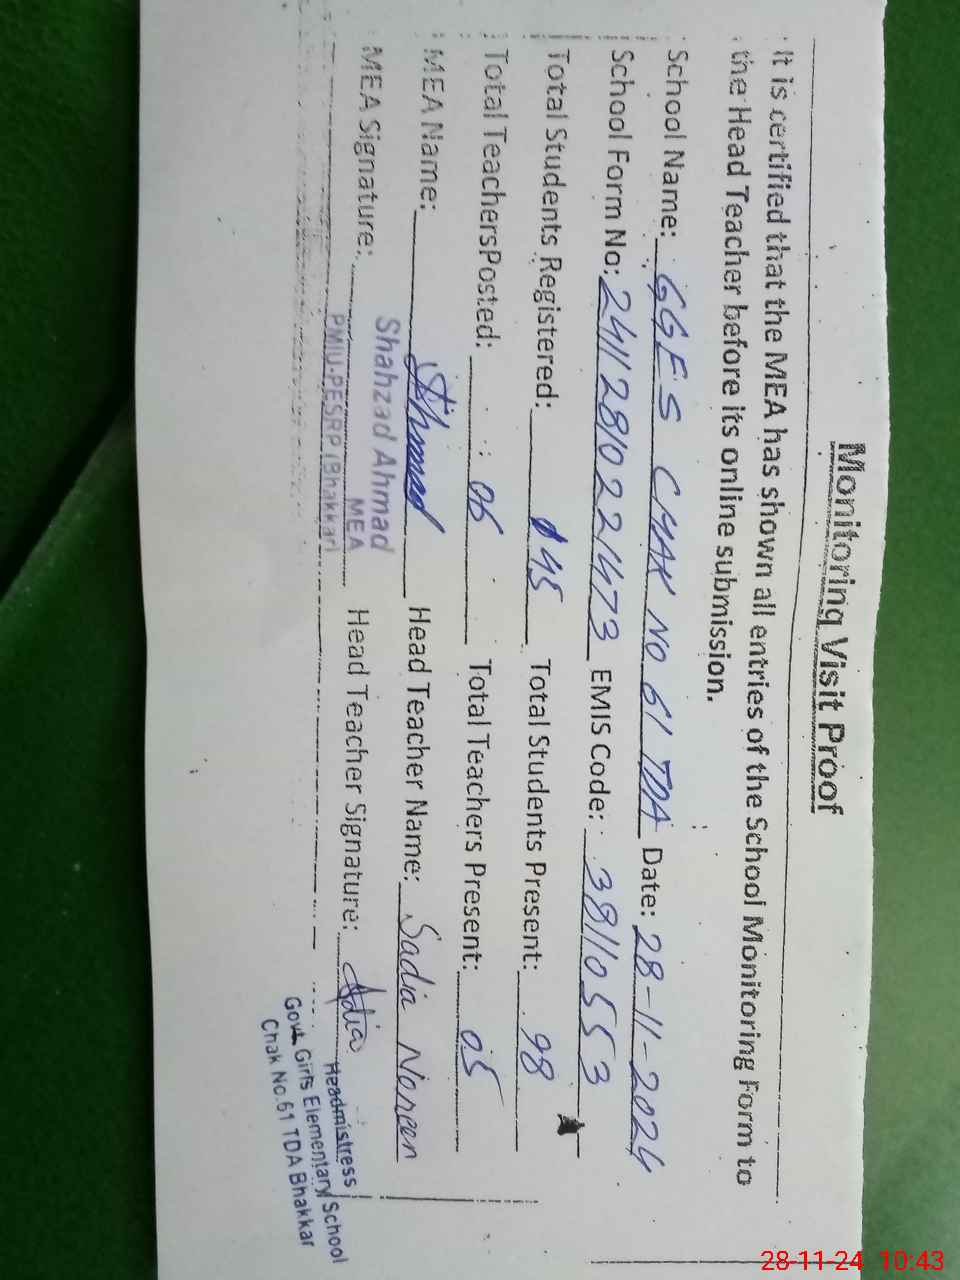 Monitoring Visit Proof
It is certified that the MEA has shown all entries of the School Monitoring Form to
the Head Teacher before its online submission.
School Name: GGES CHAK NO 61 TDA Date: 28-11-2024
School Form No: 24112810221473 EMIS Code: 38110553
Total Students Registered: 145 Total Students Present: 98
Total TeachersPosted: 06 Total Teachers Present: 05
MEA Name: Ahmad Head Teacher Name: Sadia Noreen
Shahzad Ahmad
MEA
PMIU-PESRP (Bhakkar)
MEA Signature: Head Teacher Signature: Sadia
Headmistress
Govt. Girls Elementary School
Chak No.61 TDA Bhakkar
28-11-24 10:43